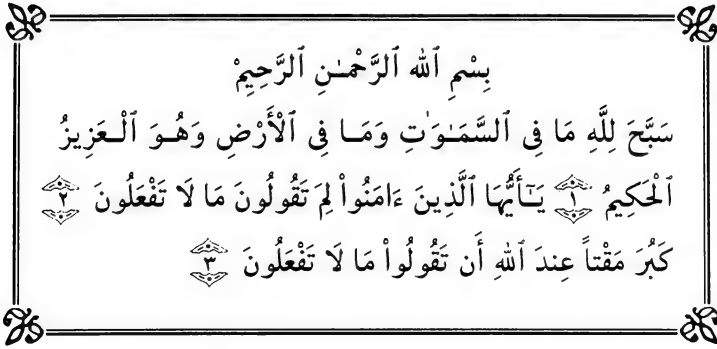 بِسْمِ ٱللهِ ٱلرَّحْمَـٰنِ ٱلرَّحِيمْ
سَبَّحَ لِلَّهِ مَا فِى ٱلسَّمَـٰوَٰتِ وَمَـا فِى ٱلْأَرْضِ وَهُـوَ ٱلْعَزِيزُ
ٱلْحَكِيمُ ١ يَـٰٓأَيُّهَا ٱلَّذِينَ ءَامَنُوا۟ لِمَ تَقُولُونَ مَا لَا تَفْعَلُونَ ٢
كَبُرَ مَقْتاً عِندَ ٱللهِ أَن تَقُولُوا۟ مَا لَا تَفْعَلُونَ ٣